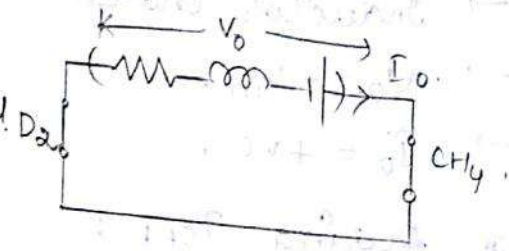 V₀
I₀.
D₂
CH₄.